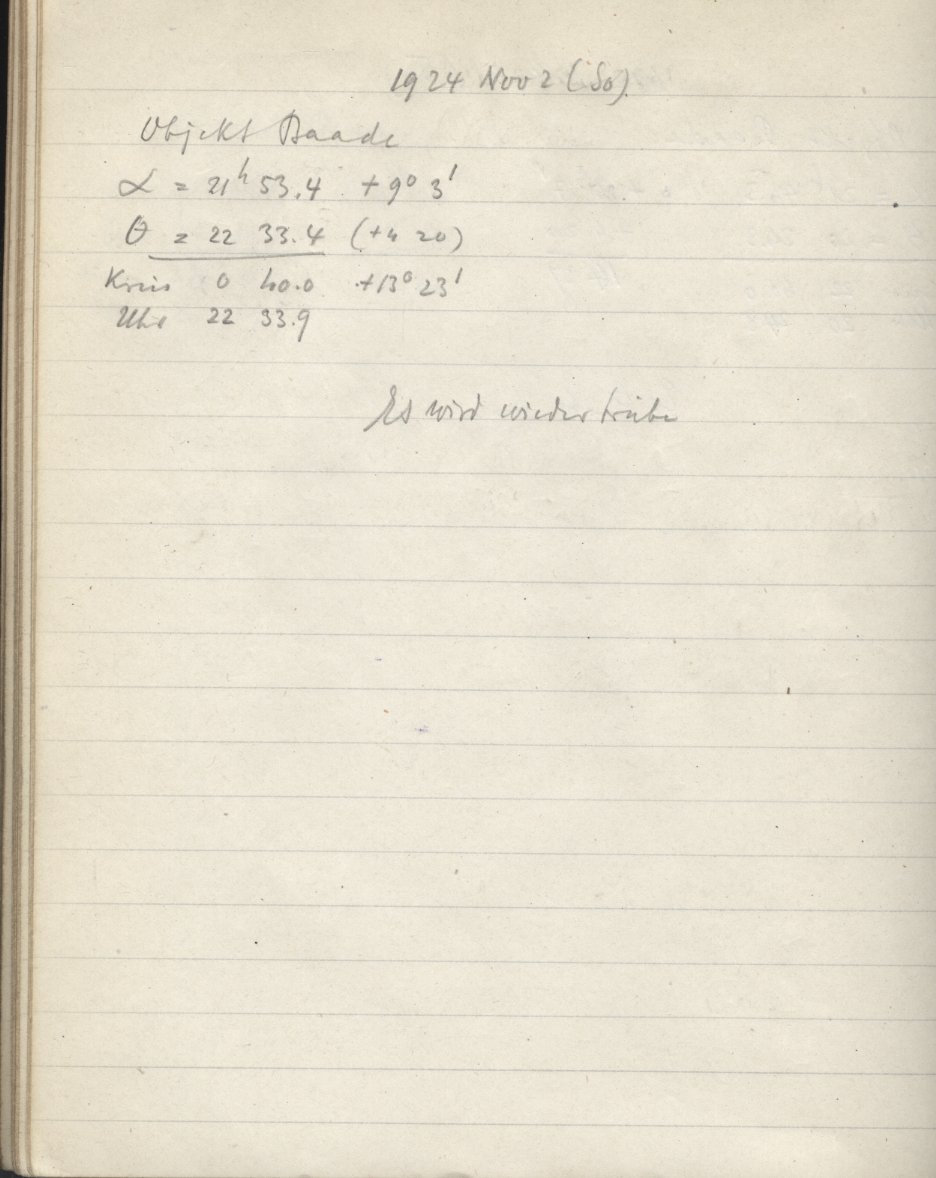 1924 Nov 2 (So)
Objekt Baade
α = 21h 53.4 +9° 3'
θ = 22 33.4 (+4 20)
Kreis 0 40.0 +13° 23'
Uhr 22 33.9
Es wird wieder trübe